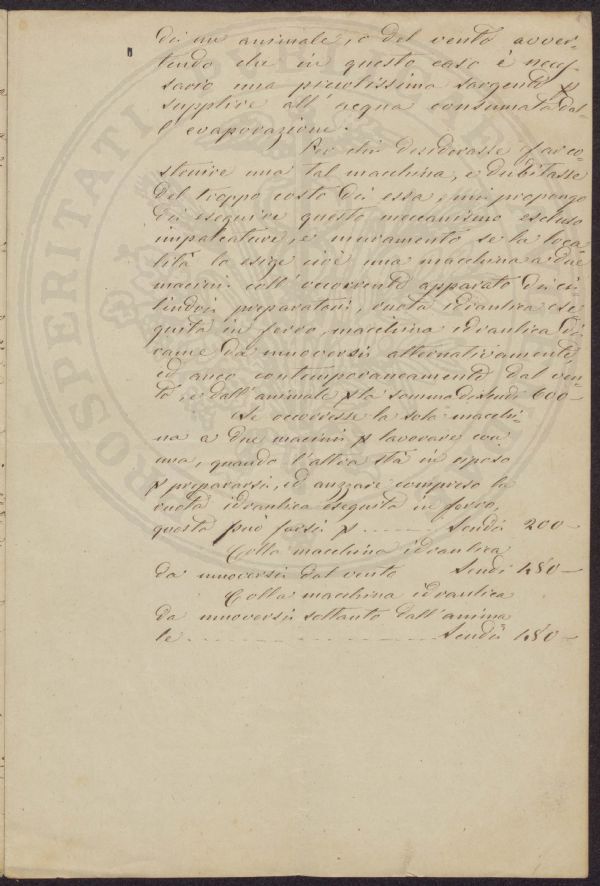 di un animale, o del vento avver-
tendo che in questo caso è neces-
sario una piccolissima sorgente p
supplire all'acqua consumata dal-
l'evaporazione.
Per chi desiderasse far co-
struire una tal macchina, e dubitasse
del troppo costo di essa, mi propongo
di eseguire questo meccanismo escluso
impalcature, e muramento se la loca-
lità lo esige cioè una macchina a due
macini coll'occorrente apparato di ci-
lindri preparatori, ruota idraulica ese-
guita in ferro, macchina idraulica di
rame da muoversi alternativamente
ed anco contemporaneamente dal ven-
to, e dall'animale p la somma di scudi 600-
Se occorresse la sola macchi-
na a due macini p lavorare con
una, quando l'altra stà in riposo
p prepararsi, ed auzzare compreso la
ruota idraulica eseguita in ferro,
questa può farsi p ------- Scudi 200-
Colla macchina idraulica
da muoversi dal vento Scudi 480-
Colla macchina idraulica
da muoversi soltanto dall'anima
le ------------------- Scudi 480-
PROSPERITATI